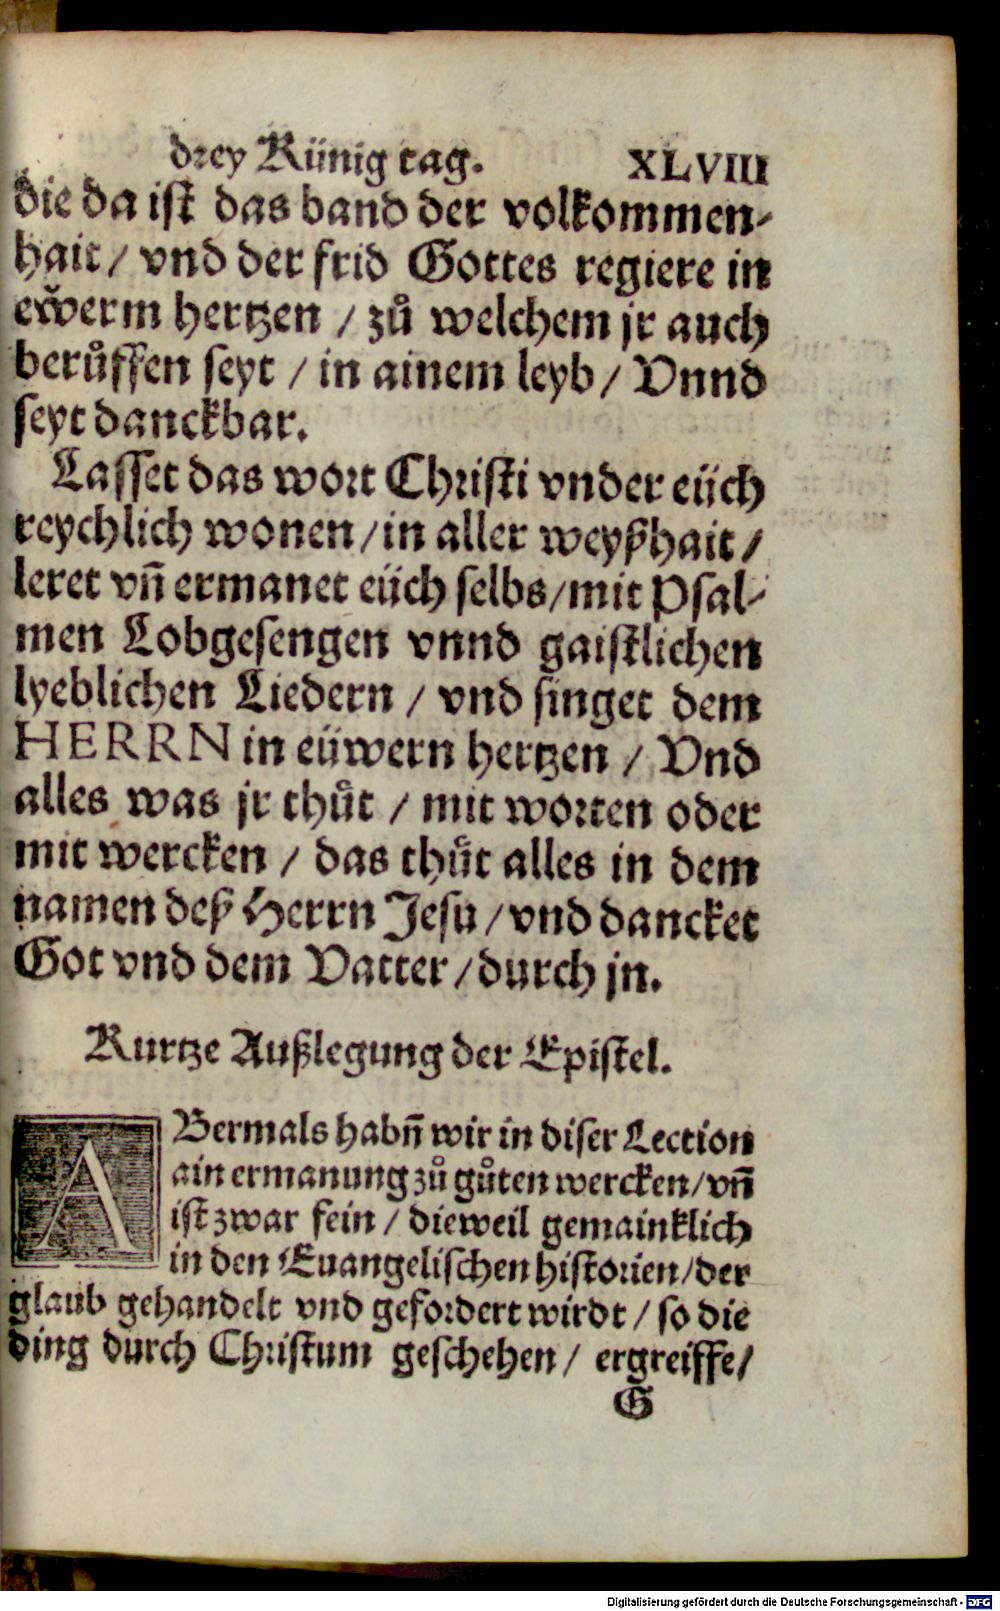 drey Künig tag. XLVIII
die da ist das band der volkommen-
hait / vnd der frid Gottes regiere in
ewerm hertzen / zů welchem jr auch
berůffen seyt / in ainem leyb / Vnnd
seyt danckbar.
Lasset das wort Christi vnder eüch
reychlich wonen / in aller weyßhait /
leret vn̄ ermanet eüch selbs / mit Psal-
men Lobgesengen vnnd gaistlichen
lyeblichen Liedern / vnd singet dem
HERRN in eüwern hertzen / Vnd
alles was jr thůt / mit worten oder
mit wercken / das thůt alles in dem
namen deß Herrn Jesu / vnd dancket
Got vnd dem Vatter / durch jn.
Kurtze Außlegung der Epistel.
ABermals habn̄ wir in diser Lection
ain ermanung zů gůten wercken / vn̄
ist zwar fein / dieweil gemainklich
in den Euangelischen historien / der
glaub gehandelt vnd gefordert wirdt / so die
ding durch Christum geschehen / ergreiffe /
G
Digitalisierung gefördert durch die Deutsche Forschungsgemeinschaft - DFG